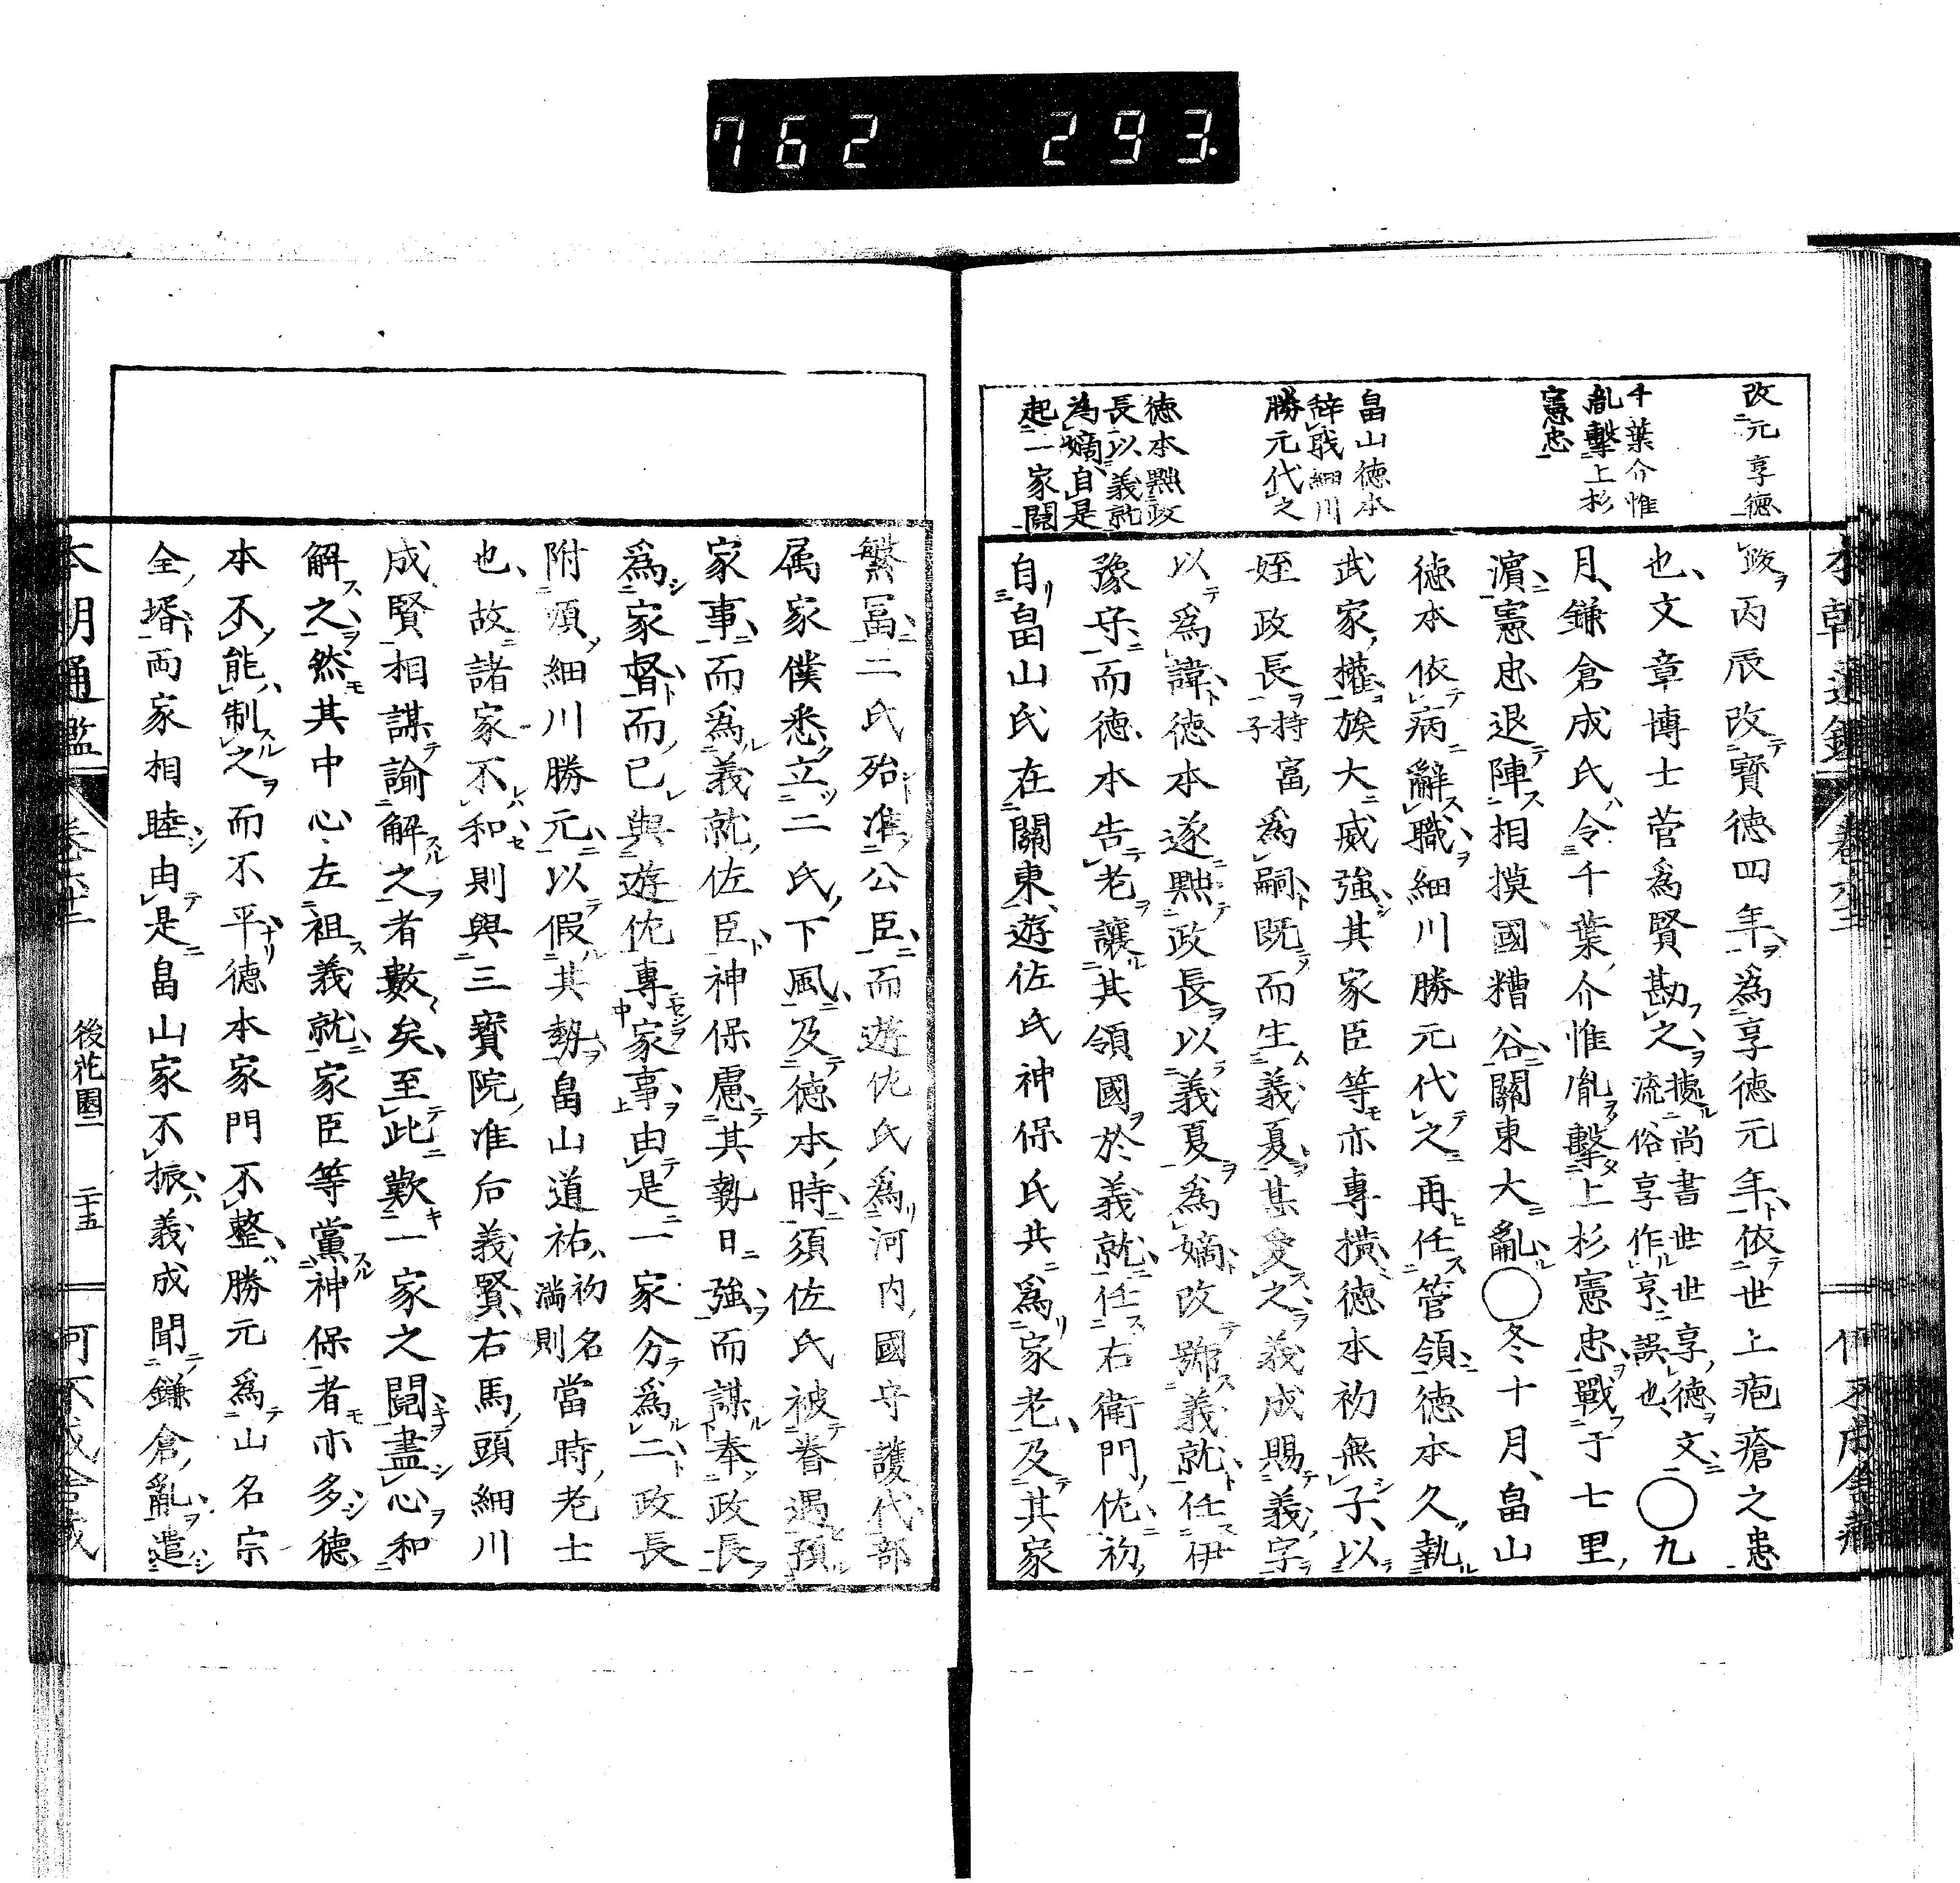 762 293.
改元享德
千葉介惟
胤擊上杉
憲忠
畠山德本
辭職細川
勝元代之
德本黜政
長以義就
為嫡自是
起一家鬩
政丙辰改寶德四年爲享德元年依世上疱瘡之患
也文章博士菅爲賢勘之據尚書世世享德文流俗享作亨誤也〇九
月鎌倉成氏令千葉介惟胤擊上杉憲忠戰于七里
濵憲忠退陣相摸國糟谷關東大亂〇冬十月畠山
德本依病辭職細川勝元代之再任管領德本久執
武家權族大威強其家臣等亦專横德本初無子以
姪政長持富子爲嗣既而生義夏甚愛之義成賜義字
以爲諱德本遂黜政長以義夏爲嫡改號義就任伊
豫守而德本告老讓其領國於義就任右衛門佐初
自畠山氏在關東遊佐氏神保氏共爲家老及其家
繁冨二氏殆準公臣而遊佐氏爲河内國守護代部
属家僕悉立二氏下風及德本時須佐氏被眷遇預
家事而爲義就佐臣神保慮其勢日強而謀奉政長
爲家督而已與遊佐專家中事由是一家分爲二政長
附頌細川勝元以假其勢畠山道祐初名満則當時老士
也故諸家不和則與三寳院准后義賢右馬頭細川
成賢相謀諭解之者數矣至此歎一家之鬩盡心和
解之然其中心左袒義就家臣等黨神保者亦多德
本不能制之而不平德本家門不整勝元爲山名宗
全壻両家相睦由是畠山家不振義成聞鎌倉亂遣
本朝通鑑 卷六十二 後花園二 二十五